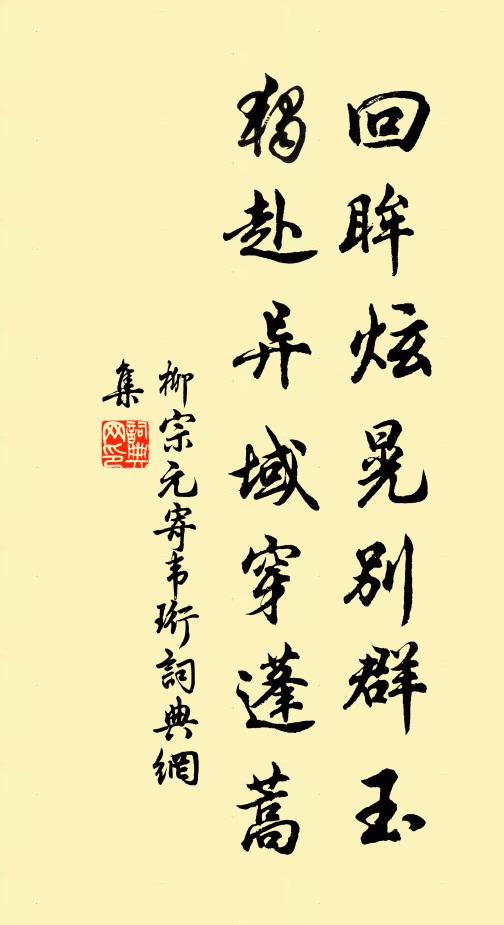 回眸炫晃别群玉
独赴异域穿蓬蒿
柳宗元寄韦珩詞典網
集
詞典
网印